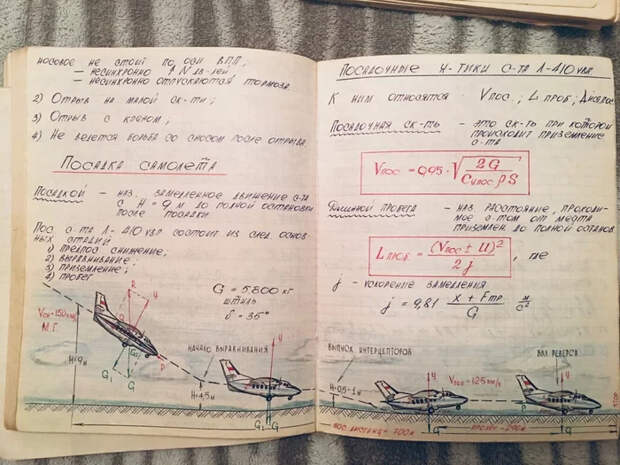 носовое не стоит по оси ВПП,
— несинхронно ↑ N дв-лей,
— несинхронно отпускаются тормоза.
2) Отрыв на малой ск-ти;
3) Отрыв с креном;
4) Не ведется борьба со сносом после отрыва.
Посадка самолета
Посадкой — наз. замедленное движение с-та
с H = 9 м до полной остановки
после посадки
Пос. с-та Л-410 УВП состоит из след. основ-
ных стадий
1) предпос. снижение;
2) выравнивание;
3) приземление;
4) пробег
G = 5800 кг
штиль
δ = 35°
М.Г.
H=9м
начало выравнивания
Посадочные х-тики с-та Л-410 УВП
К ним относятся Vпос.; L проб.; Дпосадоч
Посадочная ск-ть — это ск-ть при которой
происходит приземление
с-та
Vпос = 0,95 · √ 2G / Cупос ρ S
Длинной пробега — наз. расстояние, проходи-
мое с-том от места
приземлен. до полной останов.
L проб. = (Vпос ± U)² / 2j , где
j - ускорение замедления
j = 9,81 X + Fтр / G м/с²
выпуск интерцепторов
вкл. реверсов
H=0,5÷1м